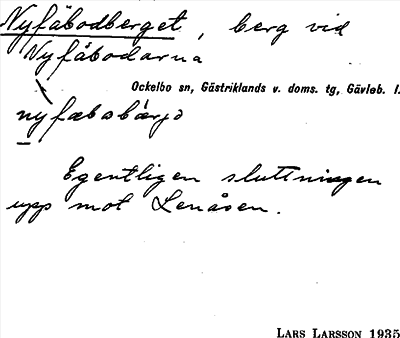 Nyfäbodberget, berg vid
Nyfäbodarna
Ockelbo sn, Gästriklands v. doms. tg, Gävleb. l.
Egentligen sluttningen
upp mot Lenåsen.
LARS LARSSON 1935